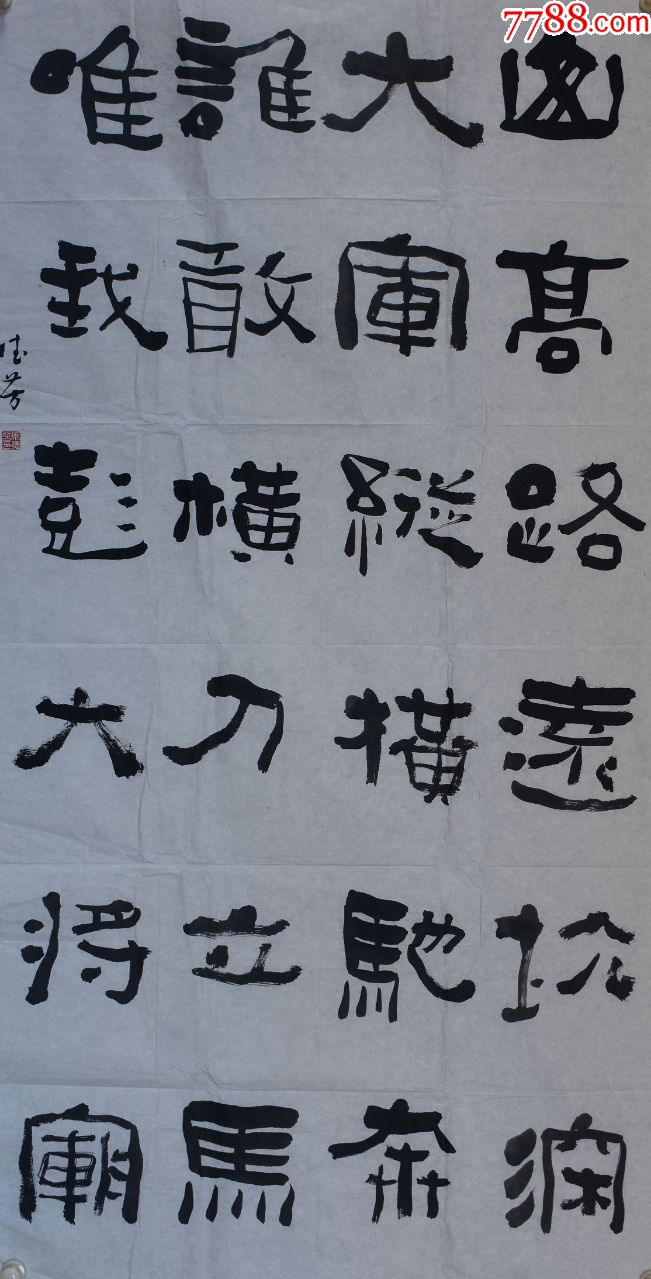 7788.com
山高路遠坑深
大軍縱橫馳奔
誰敢橫刀立馬
唯我彭大將軍